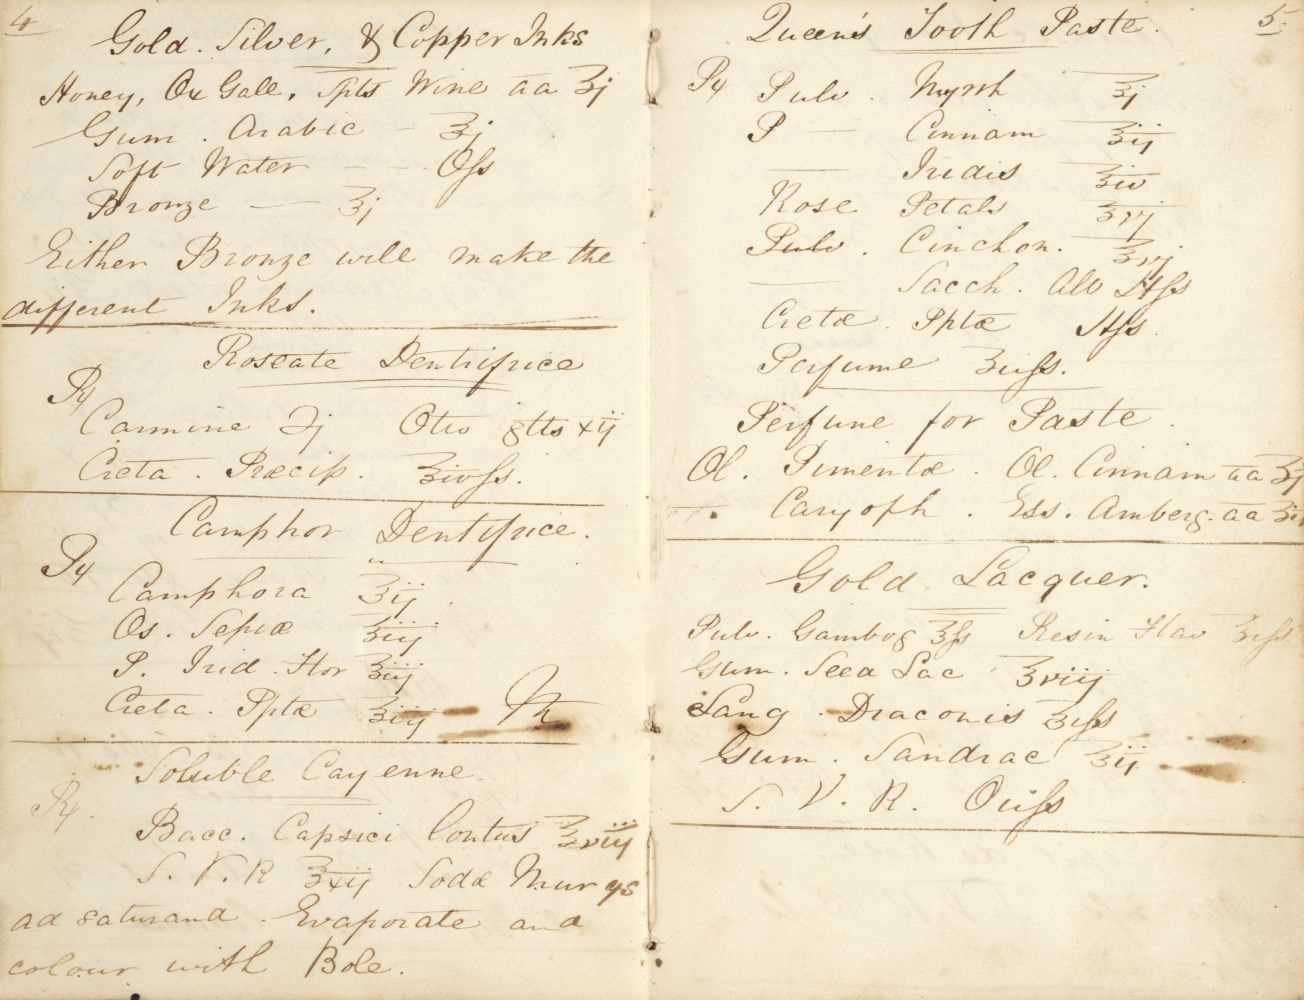 4
Gold. Silver, & Copper Inks
Honey, Ox Gall, Spts Wine aa ʒj
Gum. Arabic — ʒj
Soft Water — — Oſs
Bronze — ʒj
Either Bronze will make the
different Inks.
Roseate Dentifrice
℞
Carmine ℈j Otto gtts xij
Creta. Præcip. ℥ivſs.
Camphor Dentifrice.
℞
Camphora ʒij
Os. Sepiæ ʒiij
P. Irid. Flor ʒiij
Creta. Pptæ ʒiij M
Soluble Cayenne
℞
Bacc. Capsici Contus ℥viij
S. V. R ℥xij Sodæ Mur qs
ad saturand. Evaporate and
colour with Bole.
5
Queen's Tooth Paste.
℞ Pulv. Myrrh ℥j
P — Cinnam ℥ij
— Iridis ℥iv
Rose Petals ℥vj
Pulv. Cinchon. ℥vj
— Sacch. Alb ℔ſs
Cretæ. Pptæ ℔ſs.
Perfume ʒiiſs.
Perfume for Paste.
Ol. Pimentæ. Ol. Cinnam aa ʒj
— . Caryoph. Ess. Amberg. aa
Gold Lacquer.
Pulv. Gambog ʒſs Resin Flav ʒiſs
Gum. Seed Lac ʒviij
Sang. Draconis ʒiſs
Gum. Sandrac ʒij
S. V. R. Oiiſs